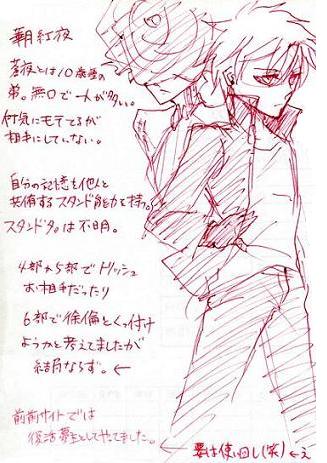 華紅夜
蒼夜とは10歳差の
弟。無口で一人が多い。
何気にモテてるが
相手にしていない。
自分の記憶を他人と
共有するスタンド能力を持つ。
スタンド名は不明。
4部か5部でトリッシュ
お相手だったり
6部で徐倫とくっ付け
ようかと考えてましたが
結局ならず。←
前前サイトでは
復活夢主としてやってました。
←
裏は使い回し(笑) ←え